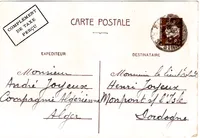 COMPLEMENT
DE TAXE
PERÇU
CARTE POSTALE
EXPÉDITEUR
DESTINATAIRE
Monsieur
André Joyeux
Compagnie Algérienne
Alger
Monsieur le
Henri Joyeux
Monfront s/ l'Isle
Dordogne